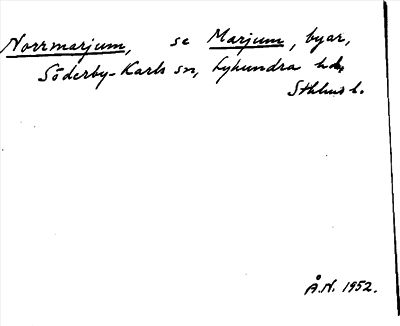 Norrmarjum, se Marjum, byar,
Söderby-Karls sn, Lyhundra hd,
Sthlms l.
Å.N. 1952.